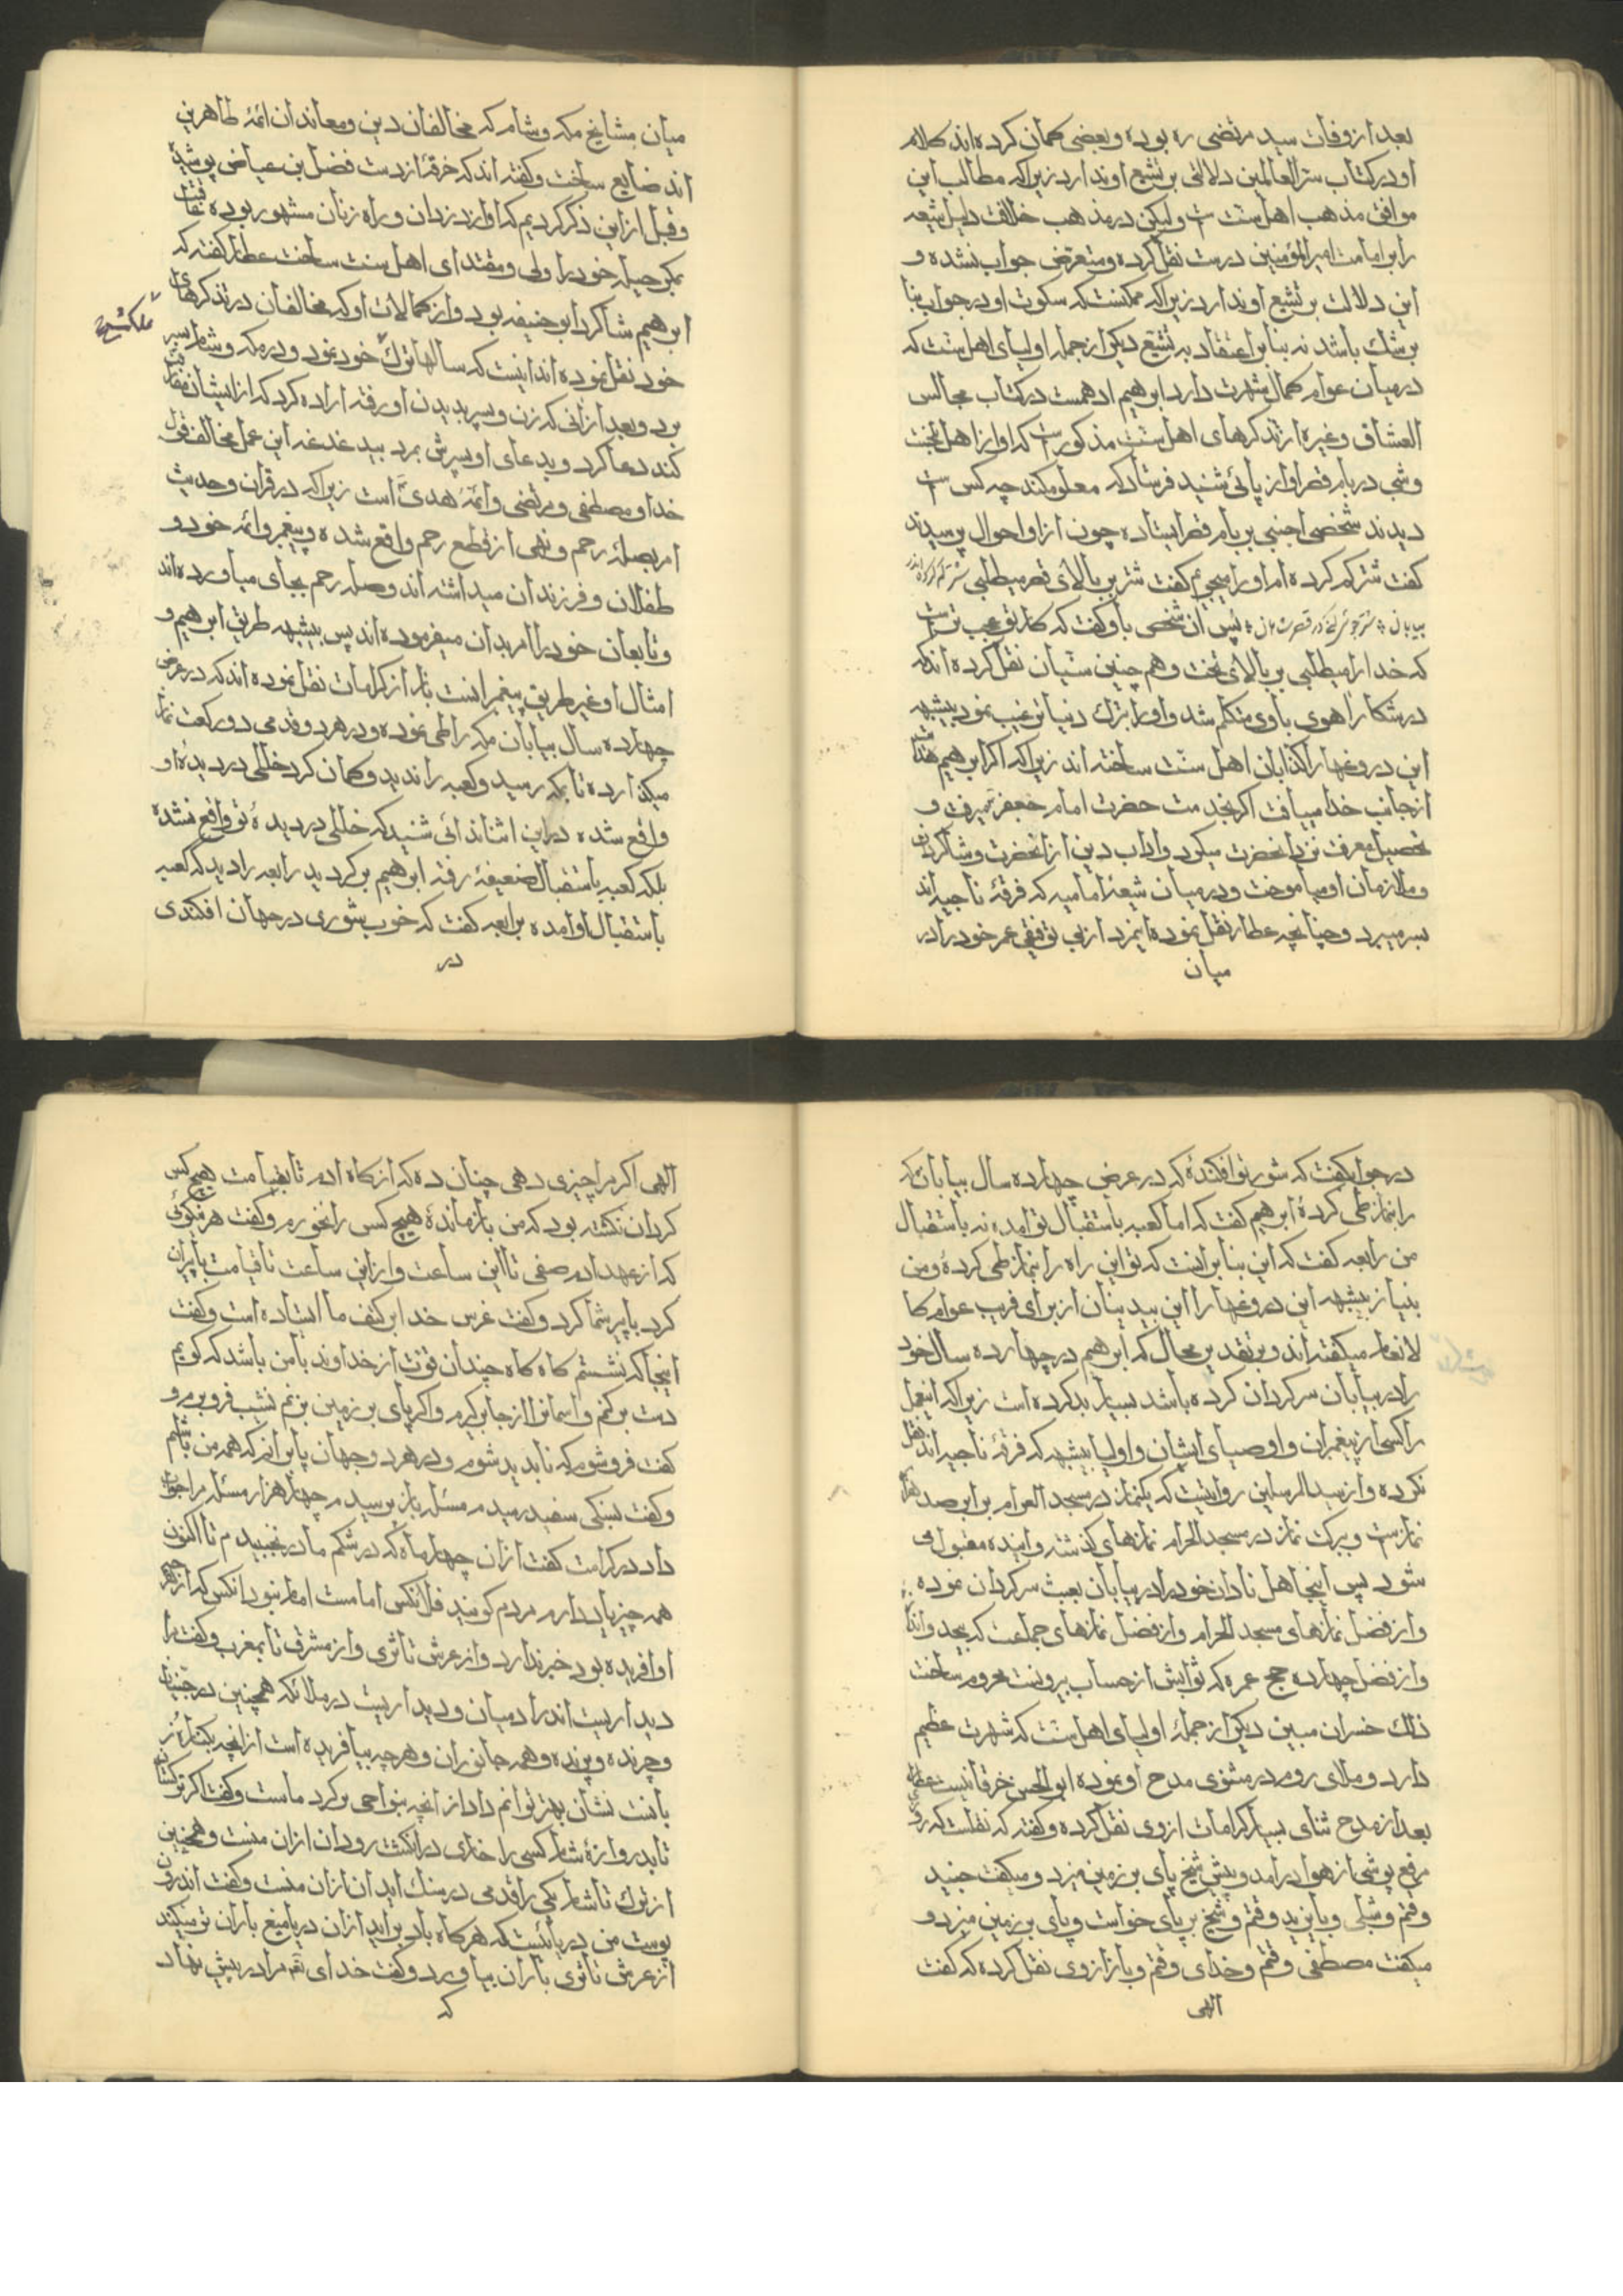 بعد از وفات سید مرتضی ره بوده و بعضی کمان کرده‌اند کلام
او در کتاب سرّ العالمین دلالتی بر تشیع او ندارد زیرا که مطالب این
موافق مذهب اهل سنت است و لیکن در مذهب خلافت دلیل شیعه
را بر امامت امیرالمؤمنین درست نقل کرده و متعرض جواب نشده و
این دلالت بر تشیع او ندارد زیرا که ممکنست که سکوت او در جواب بنا
بر شک باشد نه بنابر اعتقاد به تشیع دیگر از جمله اولیای اهل سنت که
در میان عوام کمال شهرت دارد ابرهیم ادهمست در کتاب مجالس
العشاق و غیره از تذکرهای اهل سنت مذکور است که او از اهل بلخست
و شبی در بام قصر اواز پائی شنید فرستاد که معلوم کنند چه کس است
دیدند شخصی اجنبی بر بام قصر ایستاده چون از او احوال پرسیدند
کفت شتر کم کرده‌ام او را میجویم کفت شتر بر بالای قصر میطلبی
پس ان شخص باو کفت که کار تو عجب‌تر است
که خدا را میطلبی بر بالای تخت و هم چنین سنیان نقل کرده‌اند که
در شکار اهوی باوی متکلم شد و او را بترک دنیا ترغیب نمود بیشبهه
این دروغها را کذابان اهل سنت ساخته‌اند زیرا که اکر ابرهیم هدایت
از جانب خدا مییافت اکر بخدمت حضرت امام جعفر میرفت و
تحصیل معرفت نزد انحضرت میکرد و اداب دین از انحضرت و شاکردان
و ملازمان او میاموخت و در میان شیعهٔ امامیه که فرقهٔ ناجیه‌اند
بسر میبرد و چنانچه عطار نقل نموده اینمرد از بی توفیقی عمر خود را در
میان
میان مشایخ مکه و شام که مخالفان دین و معاندان ائمهٔ طاهرین
اند ضایع ساخت و کفته‌اند که خرقه از دست فضل بن عیاض پوشیده
و قبل از این ذکر کردیم که او از دزدان و راه زنان مشهور بوده عاقبت
بمکر حیله خود را ولی و مقتدای اهل سنت ساخت عطار کفته که
ابرهیم شاکرد ابو حنیفه بود و از کمالات او که مخالفان در تذکرهای
خود نقل نموده‌اند اینست که سالها ترک خود نمود و در مکه و شام بسر
برد و بعد از انی که زن و پسر بدیدن او رفته اراده کرد که از ایشان مفارقت
کند دعا کرد و بدعای او پسرش بمرد بیدغدغه این عمل مخالف قول
خدا و مصطفی و مرتضی و ائمه هدی است زیرا که در قران و حدیث
امر بصلهٔ رحم و نهی از قطع رحم واقع شده و پیغمبر و ائمه خود و
طفلان و فرزندان میداشته‌اند و صله رحم بجای میاورده‌اند
و تابعان خود را امر بدان میفرموده‌اند پس بیشبهه طریق ابرهیم و
امثال او غیر طریق پیغمبرانست باز از کرامات نقل نموده‌اند که در عرض
چهارده سال بیابان مکه را طی نموده و در هر دو قدمی دو رکعت نماز
میکذارده تا بمکه رسید و کعبه را ندید و کمان کرد خللی در دیدهٔ او
واقع شده در این اثنا ندائی شنید که خللی در دیدهٔ تو واقع نشده
بلکه کعبه باستقبال ضعیفهٔ رفته ابرهیم برکردید رابعه را دید که کعبه
باستقبال او امده برابعه کفت که خوب شوری در جهان افکندی
در
در جواب کفت که شور تو افکندهٔ که در عرض چهارده سال بیابان مکه
را بنماز طی کردهٔ ابرهیم کفت که اما کعبه باستقبال تو امده نه باستقبال
من رابعه کفت که این بنابر انست که تو این راه را بنماز طی کردهٔ و من
بنیاز بیشبهه این دروغها را این بیدینان از برای فریب عوام کا
لانعام میکفته‌اند و بر تقدیر محال که ابرهیم در چهارده سال خود
را در بیابان سرکردان کرده باشد بسیار بد کرده است زیرا که اینعمل
را کسی از پیغمبران و اوصیای ایشان و اولیا بیشبهه که فرقهٔ ناجیه‌اند نقل
نکرده و از سید المرسلین روایتست که یکنماز در مسجد الحرام برابر صد هزار
نماز است و ببرکت نماز در مسجد الحرام نمازهای کذشته و اینده مقبول می
شود پس اینجاهل نادان خود را در بیابان بعبث سرکردان نموده
و از فضل نمازهای مسجد الحرام و از فضل نمازهای جماعت که بیحد و اندازه
و از فضل چهارده حج عمره که ثوابش از حساب بیرونست محروم ساخت
ذلک خسران مبین دیگر از جملهٔ اولیای اهل سنت که شهرت عظیم
دارد و ملای روم در مثنوی مدح او نموده ابو الحسن خرقانیست عطار
بعد از مدح ثنای بسیار کرامات از وی نقل کرده و کفته که نقلست که روزی
مرقع پوشی از هوا درامد و پیش شیخ پای بر زمین میزد و میکفت جنید
وقتم و شبلی و بایزید وقتم و شیخ بر پای خواست و پای بر زمین میزد و
میکفت مصطفی وقتم و خدای وقتم و باز از وی نقل کرده که کفت
الهی
الهی اکر مرا چیزی دهی چنان ده که از کاه ادم تا بقیامت هیچ کس
کردان نکشته بود که من بازماندهٔ هیچ کس را نخورم و کفت هر نیکوئی
که از عهد ادم صفی تا این ساعت و از این ساعت تا قیامت با پیران
کرد با پیر شما کرد و کفت عرس خدا بر کتف ما ایستاده است و کفت
اینجا که نشستم کاه کاه چندان قوت از خداوند بامن باشد که کویم
دست بر کنم و اسمانرا از جا برکیرم و اکر پای بر زمین بزنم بنشیب فرو برم و
کفت فرو شوم که ناپدید شوم و در هر دو جهان
و کفت بسنکی سفید رسیدم مسئله باز پرسیدم چهار هزار مسئله مرا جواب
داد در کرامت کفت از ان چهار ماه که در شکم مادر بجنبیدم تا اکنون
همه چیز یاد دارم مردم کویند فلانکس امامست امام نبود انکس که از هر چه
او افریده بود خبر ندارد و از عرش تا ثری و از مشرق تا بمغرب و کفت مرا
دیداریست اندر ادمیان و دیداریست در ملائکه همچنین در جنیان
و چرنده و پرنده و همه جانوران و هر چه بیافریده است از انچه بکنارهٔ
یابنت نشان بهتر توانم داد از انچه بنواحی برکرد ماست و کفت اکر ترکستان
تا بدروازهٔ شام کسی را خاری در انکشت رود ان از ان منست و همچنین
از ترک تا شام یکی را قدمی در سنک اید ان از ان منست و کفت اندرون
پوست من دریائیست که هرکاه باد براید از ان دریا میغ باران تو میکند
از عرش تا ثری باران بیاورد و کفت خدای تع مرا در پیش نهاد
که